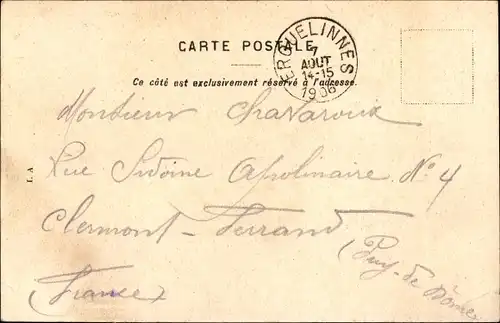 CARTE POSTALE
ERQUELINNES
7
AOUT
14-15
1906
Ce côté est exclusivement réservé à l'adresse.
Monsieur Chavaroux
Rue Sidoine Apolinaire N° 4
Clermont-Ferrand
(Puy-de Dôme)
(France)
I. A